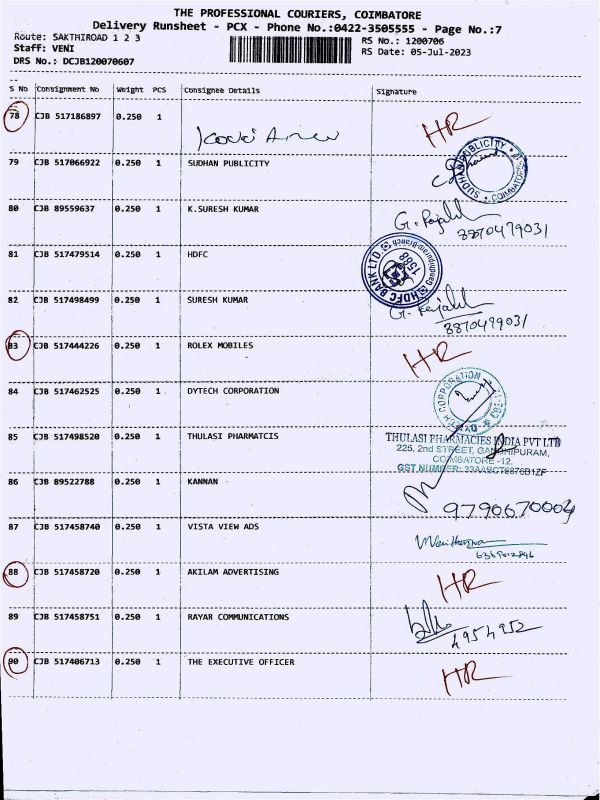 THE PROFESSIONAL COURIERS, COIMBATORE
Delivery Runsheet - PCX - Phone No.:0422-3505555 - Page No.:7
Route: SAKTHIROAD 1 2 3
RS No.: 1200706
Staff: VENI
RS Date: 05-Jul-2023
DRS No.: DCJB120070607
S No Consignment No Weight PCS Consignee Details Signature
78 CJB 517186897 0.250 1 HR
79 CJB 517066922 0.250 1 SUDHAN PUBLICITY SUDHAN PUBLICITY COIMBATORE
80 CJB 89559637 0.250 1 K.SURESH KUMAR
3870479031
81 CJB 517479514 0.250 1 HDFC HDFC BANK LTD. Gandhipuram Branch 1588
82 CJB 517498499 0.250 1 SURESH KUMAR
3870479031
83 CJB 517444226 0.250 1 ROLEX MOBILES HR
84 CJB 517462525 0.250 1 DYTECH CORPORATION DYTECH CORPORATION
85 CJB 517498520 0.250 1 THULASI PHARMATCIS THULASI PHARMACIES INDIA PVT LTD
225, 2nd STREET, GANDHIPURAM,
COIMBATORE -12.
GST NUMBER:
86 CJB 89522788 0.250 1 KANNAN
9790670004
87 CJB 517458740 0.250 1 VISTA VIEW ADS
88 CJB 517458720 0.250 1 AKILAM ADVERTISING HR
89 CJB 517458751 0.250 1 RAYAR COMMUNICATIONS
4954952
90 CJB 517406713 0.250 1 THE EXECUTIVE OFFICER HR